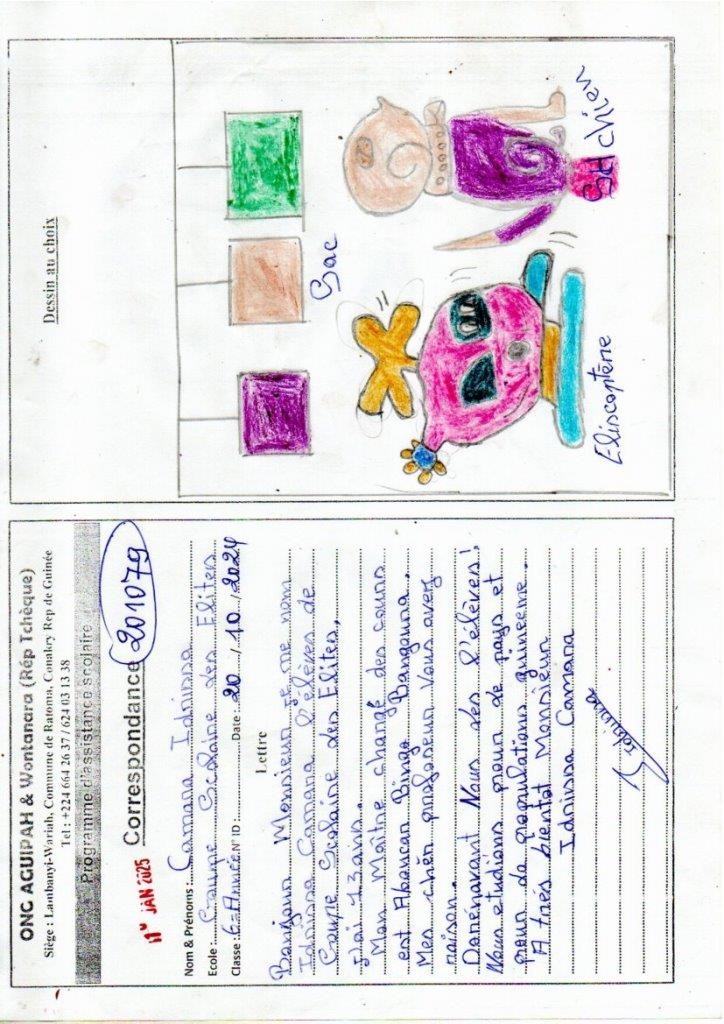 ONC AGUIPAH & Wontanara (Rép Tchèque)
Siège : Lambanyi-Wariah, Commune de Ratoma, Conakry Rep de Guinée
Tel : +224 664 26 37 / 624 03 13 38
Programme d'assistance scolaire
JAN 2025
Correspondance 201079
Nom & Prénoms : Camara Idrissa
Ecole : Groupe Scolaire des Elites
Classe : 6=Année N° ID : Date : 20/10/2024
Lettre
Bonjour Monsieur je me nom
Idrissa Camara l'élèves de
Goupe Scolaire des Elites,
j'ai 13 ans.
Mon Maître changé des cours
est Aboucar Binga Bangoura.
Mes chèr professeur Vous avez
raison.
Dorénavant Nous des l'élèves!
Nous etudions pour de pays et
pour de populations guineeme.
A trés bientot Monsieur
Idrissa Camara
Dessin au choix
Sac
Eliscoptère